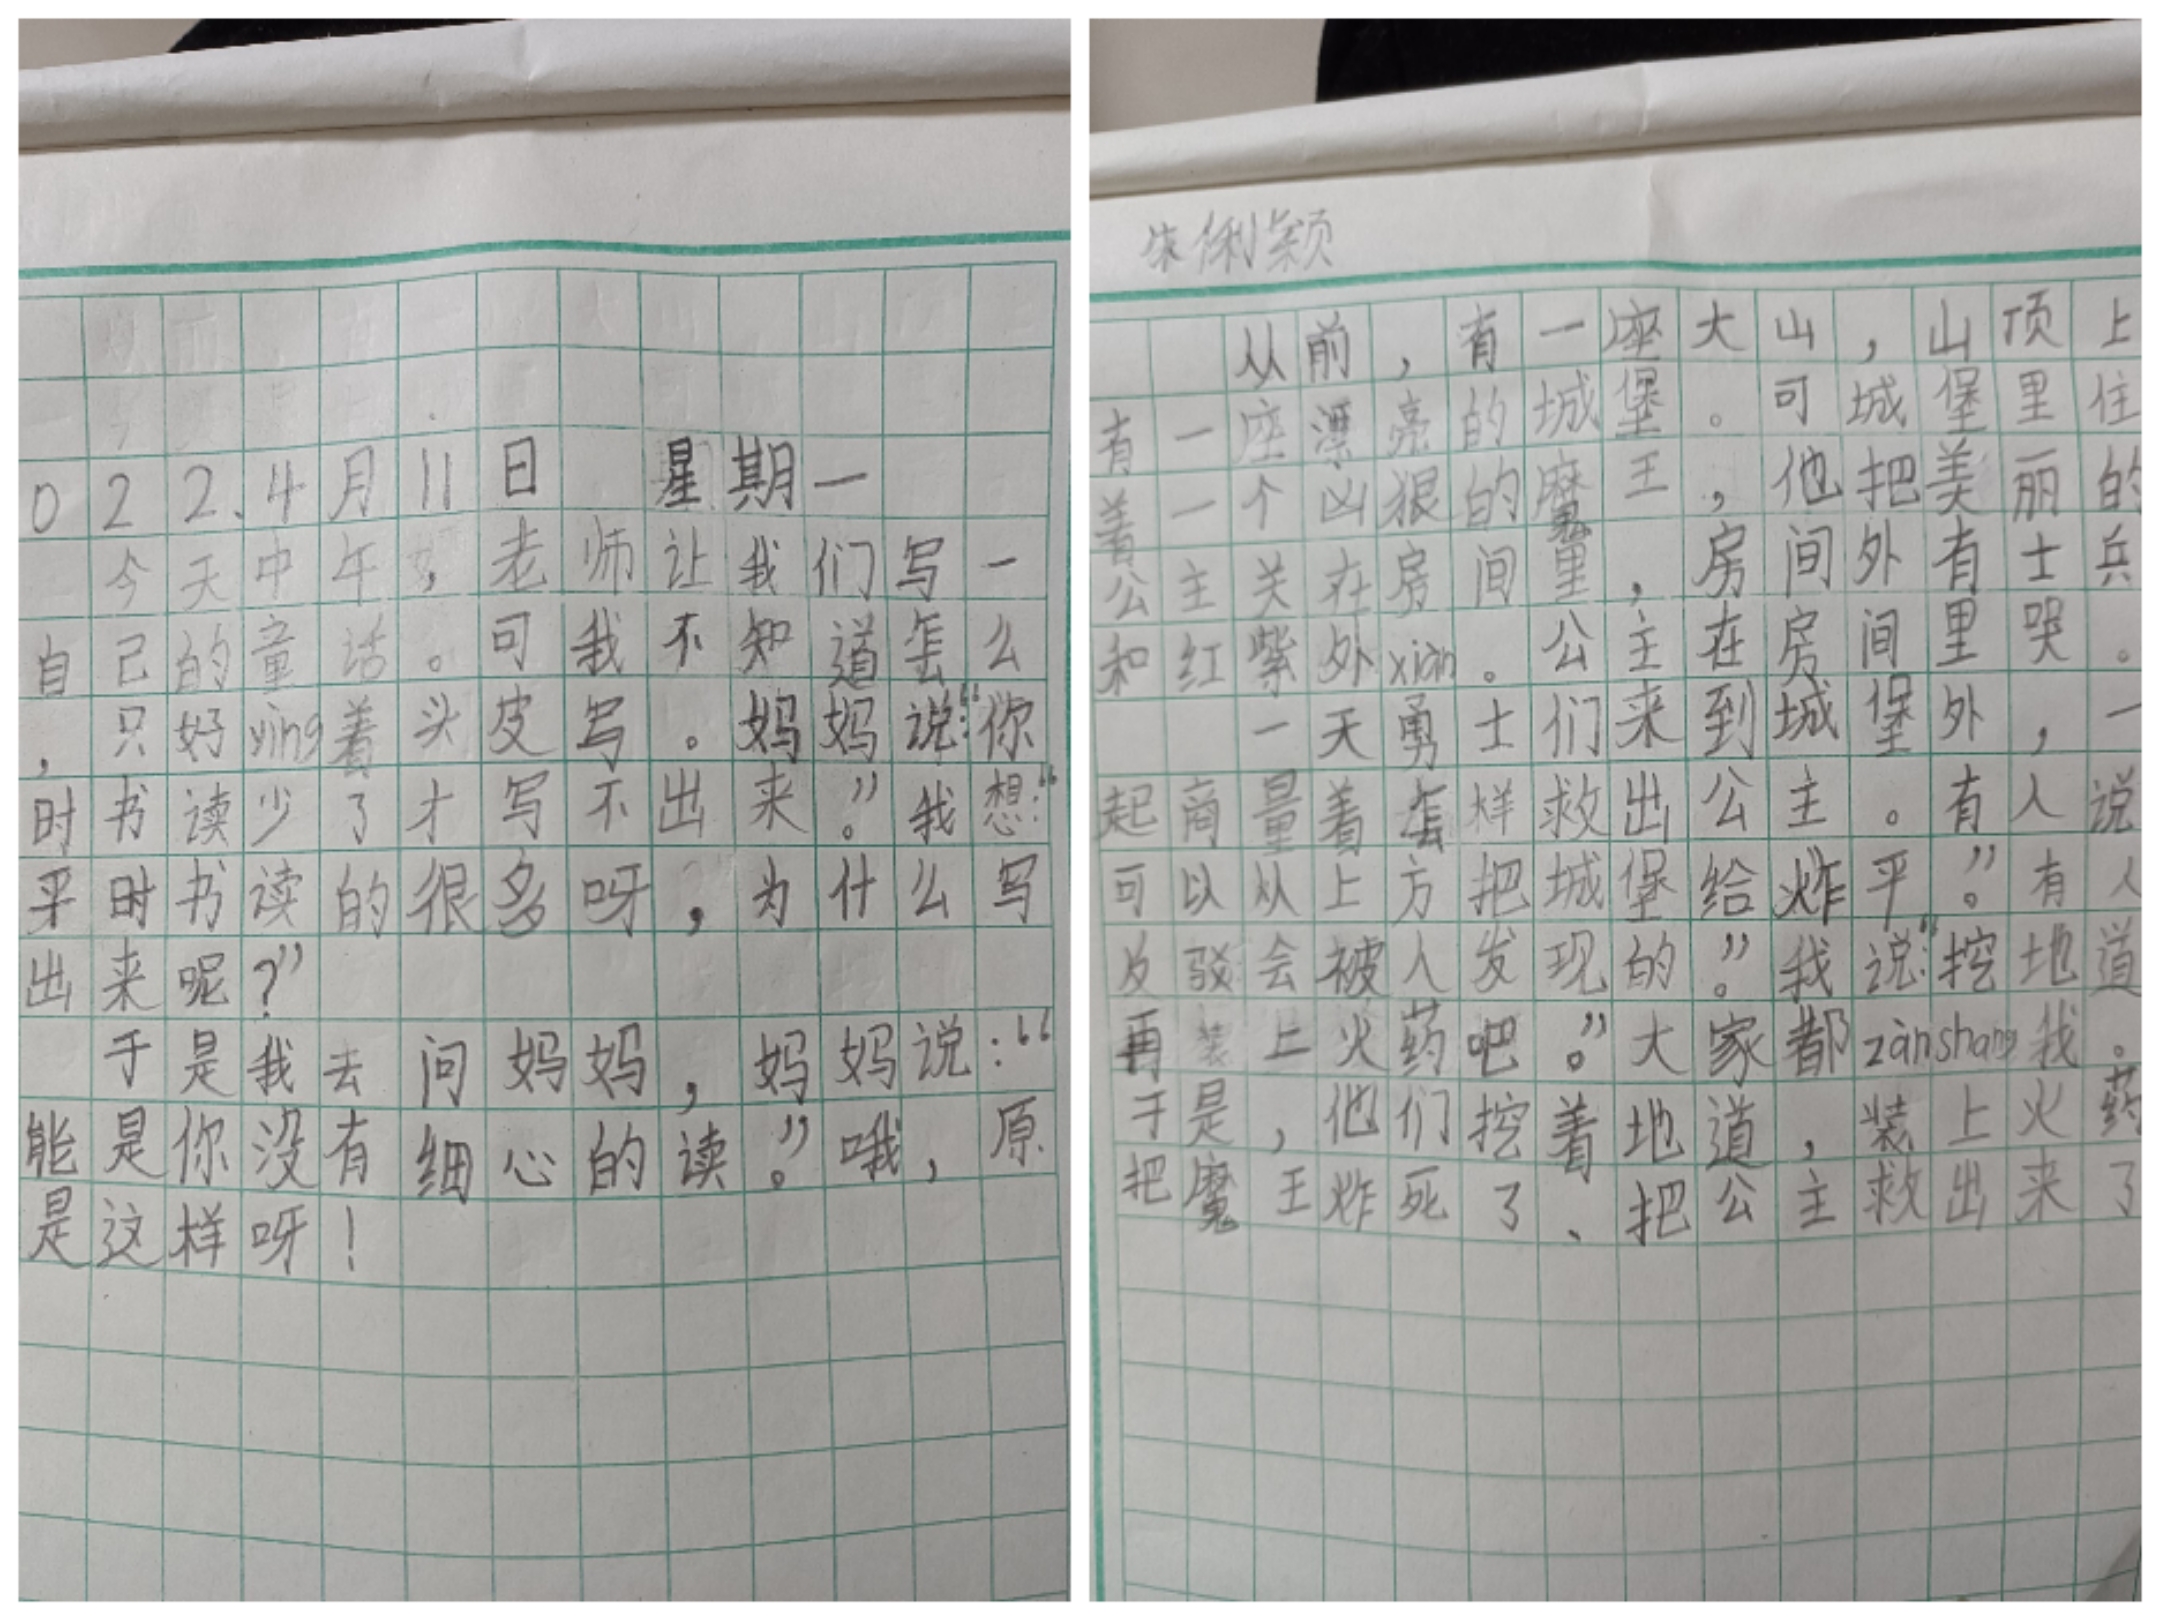 022.4月11日 星期一
今天中午,老师让我们写一
自己的童话。可我不知道怎么
,只好ying着头皮写。妈妈说:“你
时书读少了才写不出来。”我想:“
平时书读的很多呀,为什么写
出来呢?”
于是我去问妈妈,妈妈说:“
能是你没有细心的读。”哦,原
是这样呀!
朱俐颖
从前,有一座大山,山顶上
有一座漂亮的城堡。可城堡里住
着一个凶狠的魔王,他把美丽的
公主关在房间里,房间外有士兵
和红紫外xiàn。公主在房间里哭。
一天勇士们来到城堡外,一
起商量着怎样救出公主。有人说
可以从上方把城堡给炸平。”有人
反驳会被人发现的。”我说:“挖地道
再装上火药吧。”大家都zànshang我。
于是,他们挖着地道,装上火药
把魔王炸死了、把公主救出来了